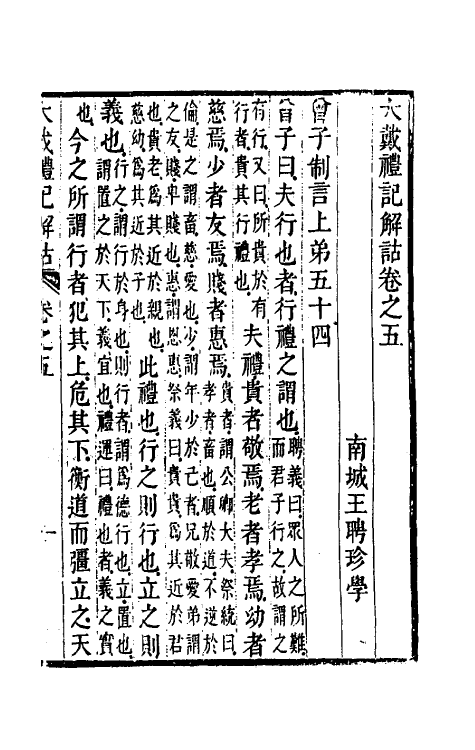 大戴禮記解詁卷之五
南城王聘珍學
曾子制言上弟五十四
曾子曰夫行也者行禮之謂也聘義曰眾人之所難而君子行之故謂之
有行又曰所貴於有行者貴其行禮也夫禮貴者敬焉老者孝焉幼者
慈焉少者友焉賤者惠焉貴者謂公卿大夫祭統曰孝者畜也順於道不逆於
倫是之謂畜慈愛也少謂年少於己者兄敬愛弟謂之友賤卑賤也惠謂恩惠祭義曰貴貴爲其近於君
也貴老爲其近於親也慈幼爲其近於子也此禮也行之則行也立之則
義也行之謂行於身也則行者謂爲德行也立置也謂置之於天下義宜也禮運曰禮也者義之實
也今之所謂行者犯其上危其下衡道而彊立之天
大戴禮記解詁 卷之五 一